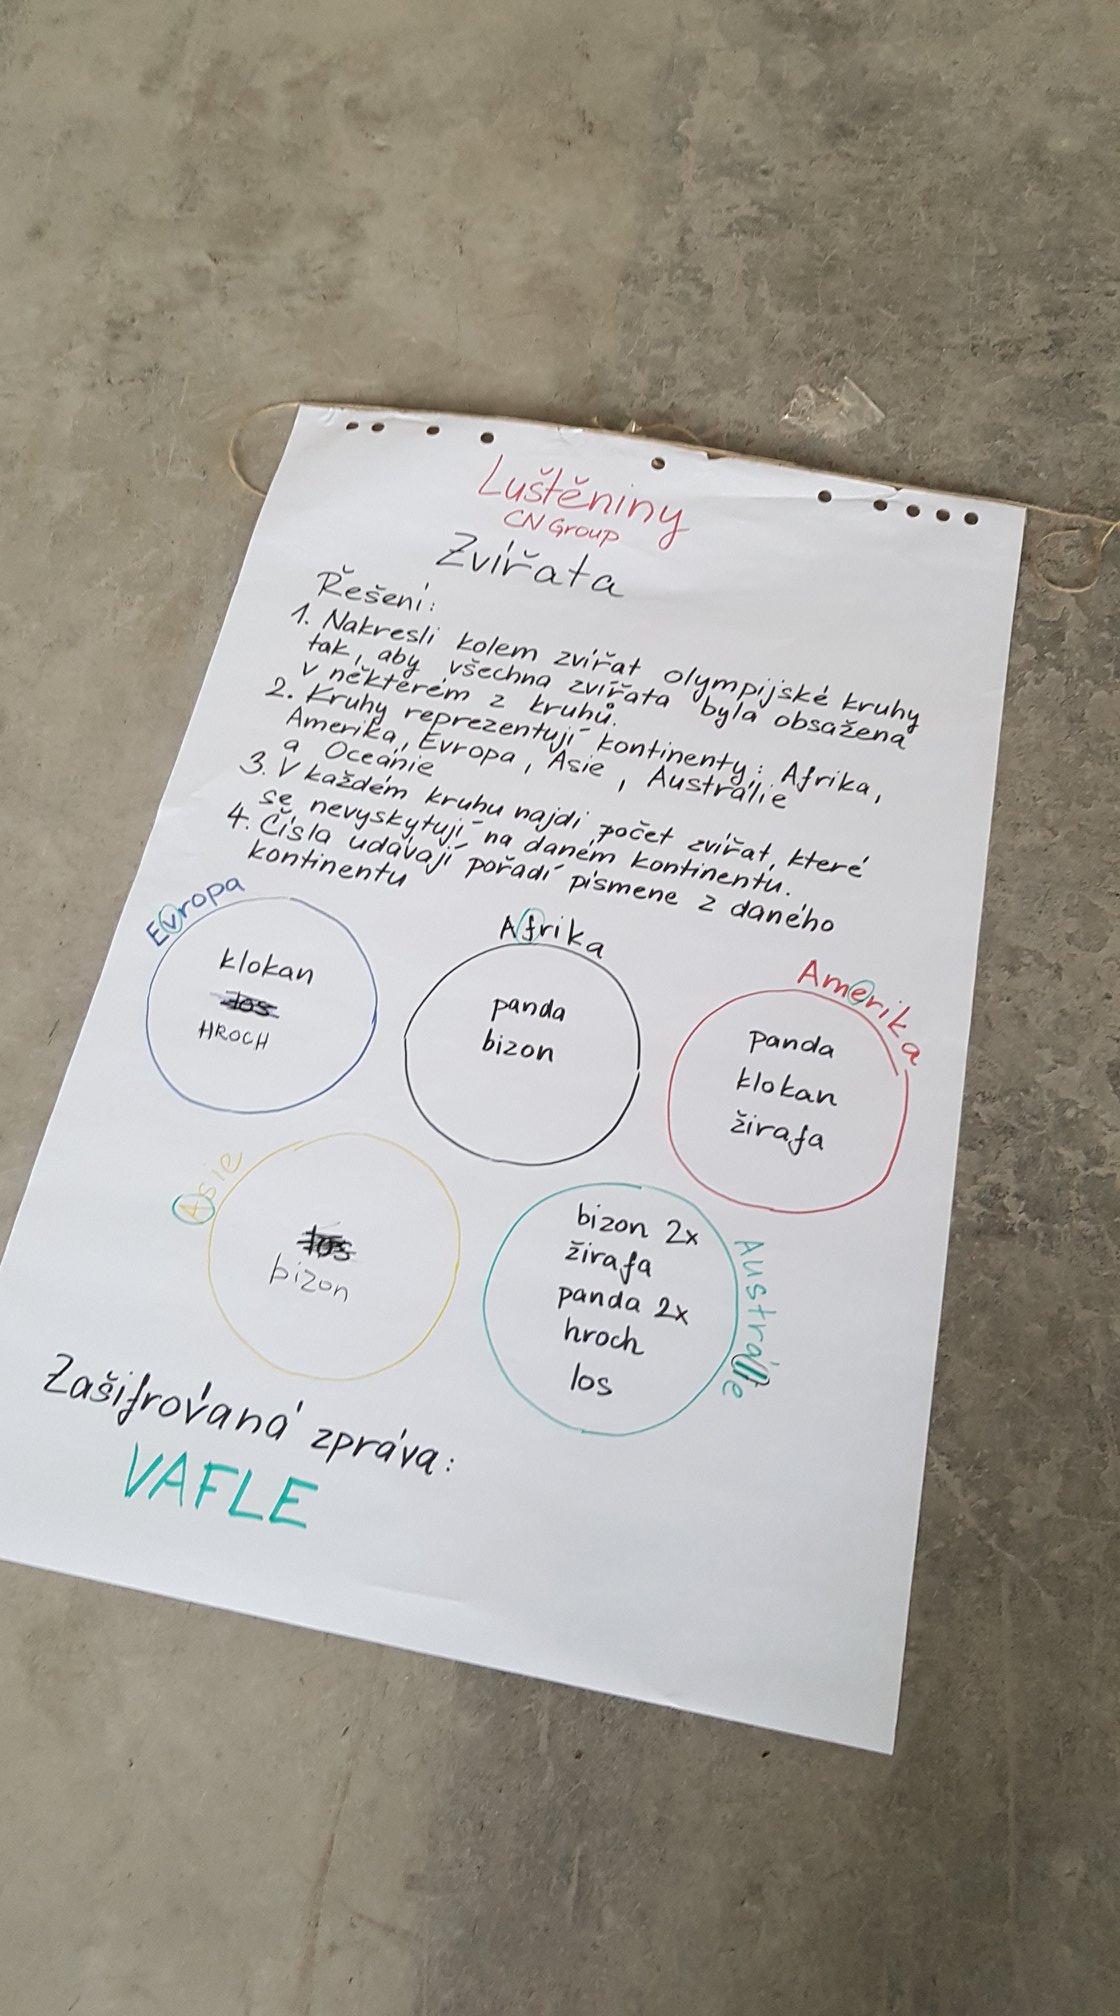 Luštěniny
CN Group
Zvířata
Řešení:
1. Nakresli kolem zvířat olympijské kruhy
tak, aby všechna zvířata byla obsažena
v některém z kruhů.
2. Kruhy reprezentují kontinenty: Afrika,
Amerika, Evropa, Asie, Austrálie
a Oceánie
3. V každém kruhu najdi počet zvířat, které
se nevyskytují na daném kontinentu.
4. Čísla udávají pořadí písmene z daného
kontinentu
Evropa
klokan
los
HROCH
Afrika
panda
bizon
Amerika
panda
klokan
žirafa
Asie
los
bizon
Austrálie
bizon 2x
žirafa
panda 2x
hroch
los
Zašifrovaná zpráva:
VAFLE